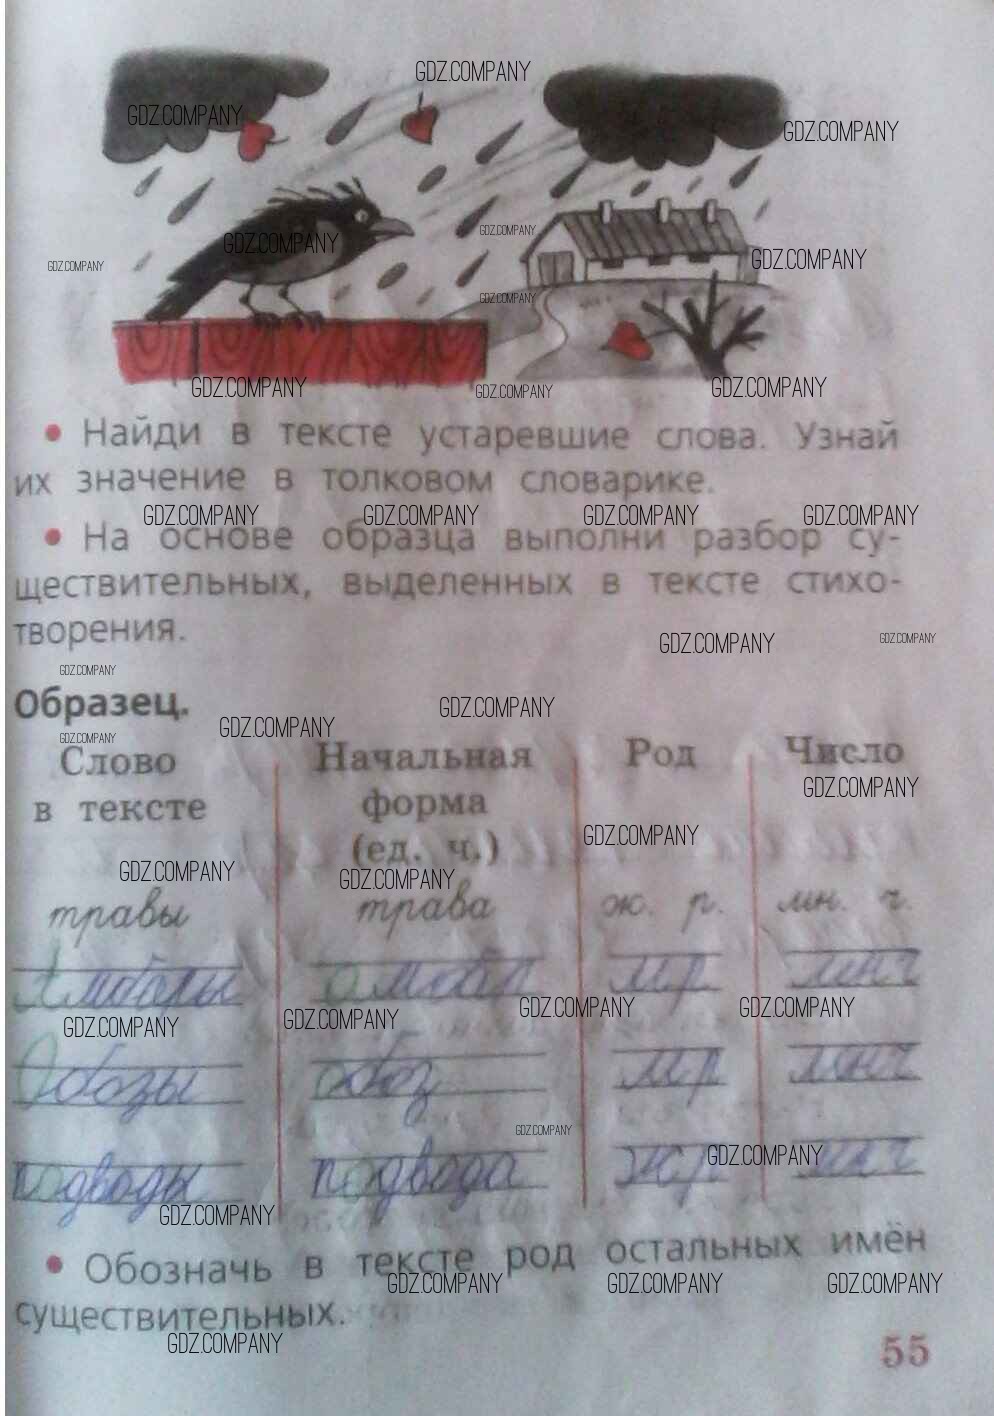 GDZ.COMPANY
GDZ.COMPANY
GDZ.COMPANY
GDZ.COMPANY
GDZ.COMPANY
GDZ.COMPANY
GDZ.COMPANY
GDZ.COMPANY
GDZ.COMPANY
GDZ.COMPANY
GDZ.COMPANY
• Найди в тексте устаревшие слова. Узнай
их значение в толковом словарике.
GDZ.COMPANY GDZ.COMPANY GDZ.COMPANY GDZ.COMPANY
• На основе образца выполни разбор су-
ществительных, выделенных в тексте стихо-
творения.
GDZ.COMPANY GDZ.COMPANY
GDZ.COMPANY
Образец.
GDZ.COMPANY GDZ.COMPANY
GDZ.COMPANY
Слово Начальная Род Число
в тексте форма
GDZ.COMPANY
(ед. ч.)
GDZ.COMPANY
GDZ.COMPANY GDZ.COMPANY
травы трава ж. р. мн. ч.
Амбары амбар мр мнч
GDZ.COMPANY GDZ.COMPANY GDZ.COMPANY GDZ.COMPANY
Обозы обоз мр мнч
GDZ.COMPANY
GDZ.COMPANY
подводы подвода жр мнч
GDZ.COMPANY
• Обозначь в тексте род остальных имён
GDZ.COMPANY GDZ.COMPANY GDZ.COMPANY
существительных.
GDZ.COMPANY
55